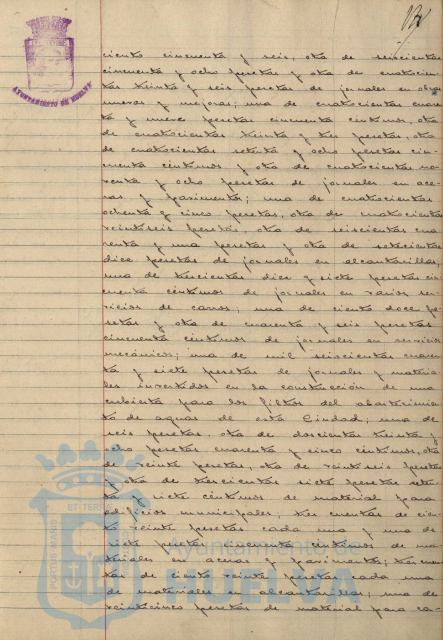 AYUNTAMIENTO DE HUELVA
ciento cincuenta y seis, otra de seiscientas
cincuenta y ocho pesetas y otra de cuatrocien-
tas treinta y seis pesetas de jornales en obras
nuevas y mejoras; una de cuatrocientas cuaren-
ta y nueve pesetas cincuenta céntimos, otra
de cuatrocientas treinta y tres pesetas, otra
de cuatrocientas setenta y ocho pesetas cin-
cuenta céntimos y otra de cuatrocientas no-
venta y ocho pesetas de jornales en ace-
ras y pavimento; una de cuatrocientas
ochenta y cinco pesetas, otra de
veintiseis pesetas, otra de seiscientas cua-
renta y una pesetas y otra de setecientas
dice pesetas de jornales en alcantarillas;
una de trescientas diez y siete pesetas cin-
cuenta céntimos de jornales en varios ser-
vicios de carros; una de ciento doce pe-
setas y otra de cuarenta y seis pesetas
cincuenta céntimos de jornales en servicios
mecánicos; una de mil seiscientas cuaren-
ta y siete pesetas de jornales y materia-
les invertidos en la construcción de una
cubierta para los filtros del abastecimien-
to de aguas de esta Ciudad; una de
seis pesetas, otra de doscientas treinta y
ocho pesetas cuarenta y cinco céntimos, otra
de veinte pesetas, otra de veintiseis pesetas
y otra de trescientas siete pesetas seten-
ta y siete céntimos de material para
edificios municipales; tres cuentas de cien-
to veinte pesetas cada una y una de
siete pesetas cincuenta céntimos de ma-
teriales en aceras y pavimento; tres cuen-
tas de ciento veinte pesetas cada una
de materiales en alcantarillas; una de
veinticinco pesetas de material para ca-
PORTUS MARIS
ET TERRAE
Ayuntamiento de
HUELVA